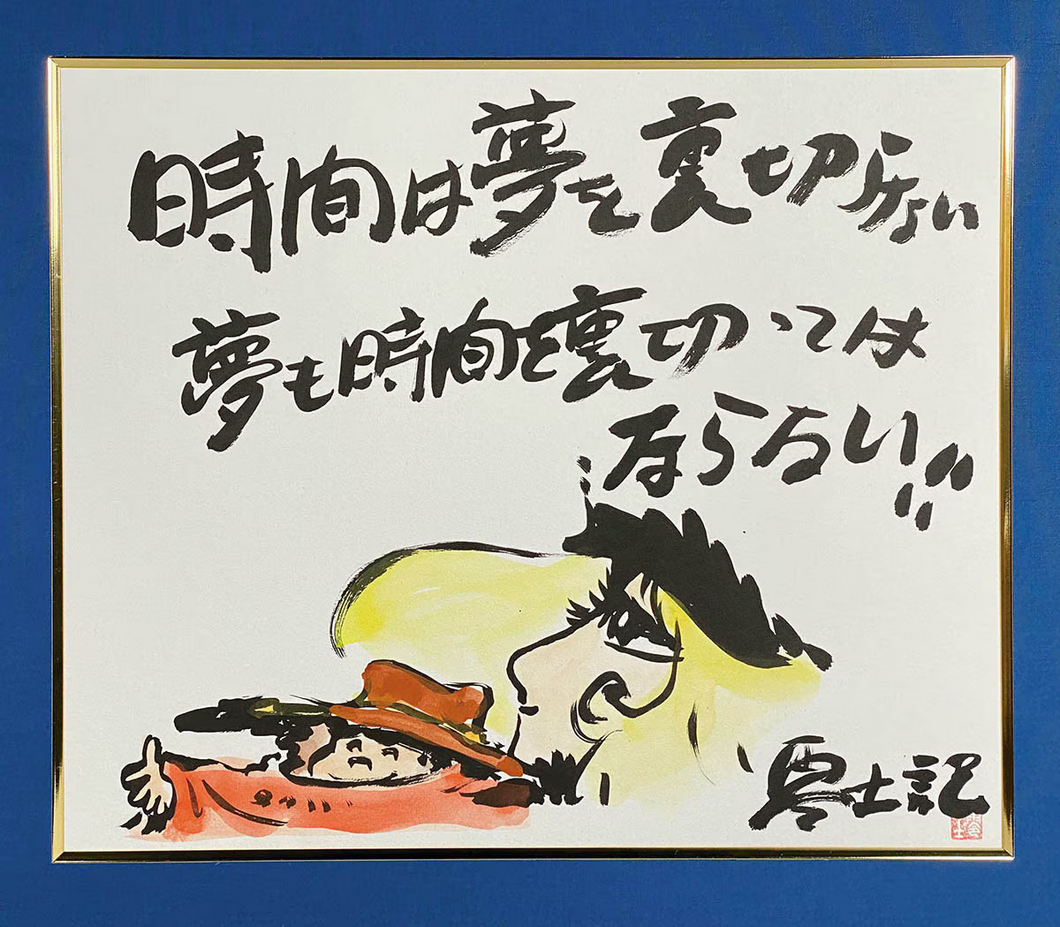 時間は夢を裏切らない
夢も時間を裏切っては
ならない!!
零士記